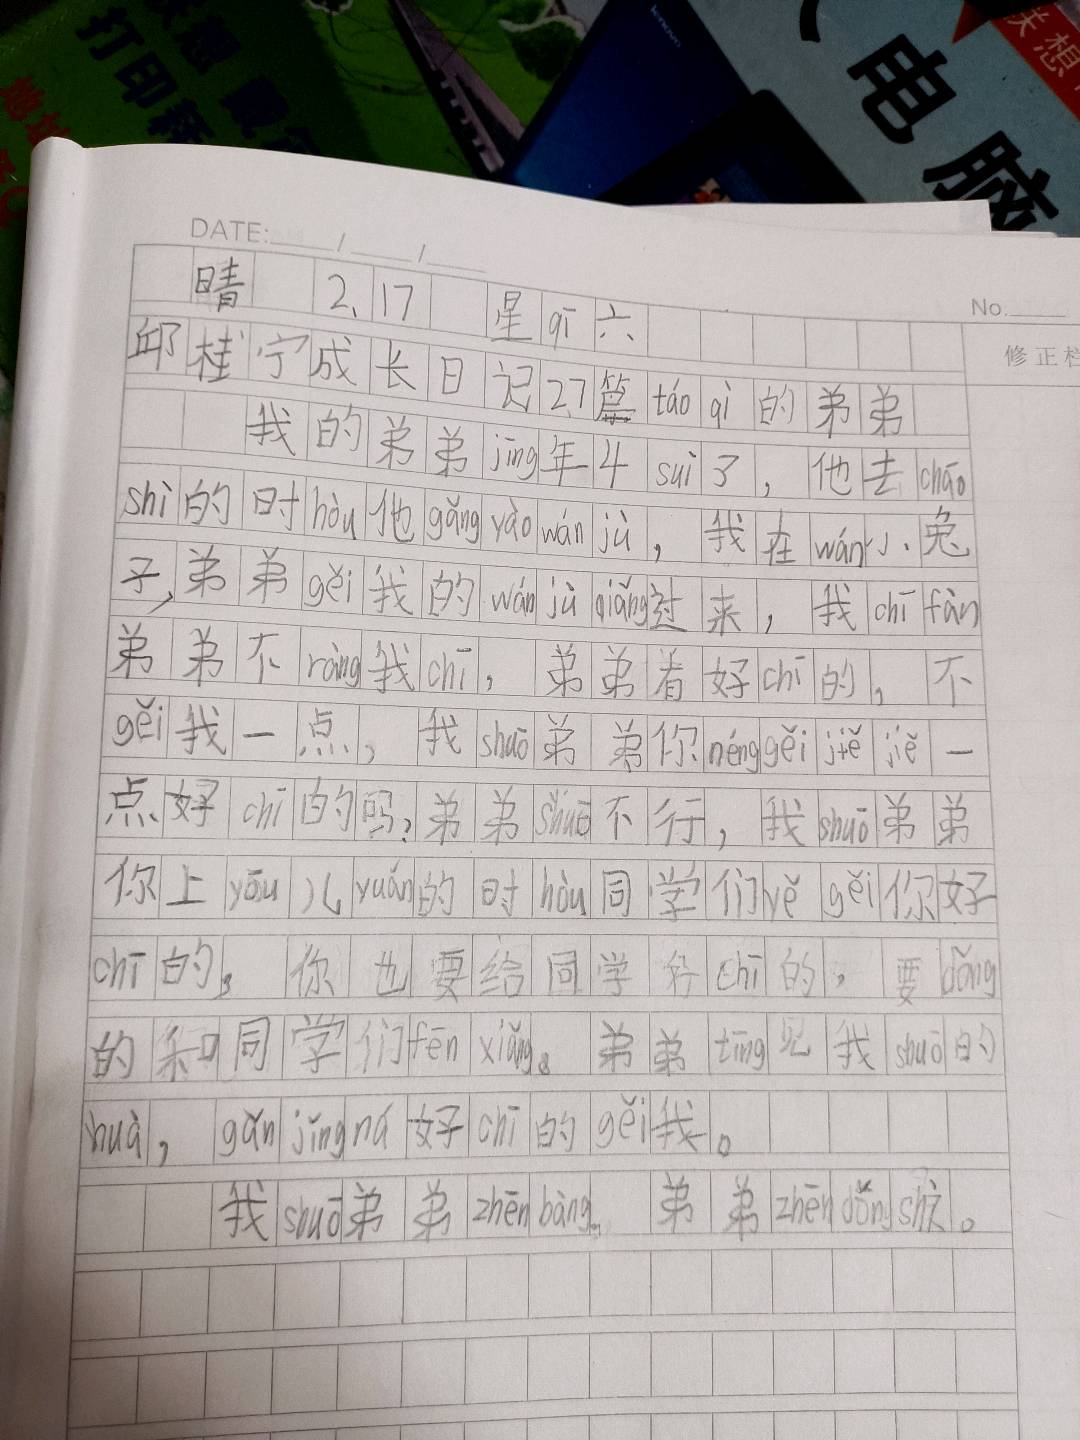 联想
打印
lenovo
电脑
联想
DATE:____/____/____
No.____
修正栏
晴 2、17 星qī六
邱桂宁成长日记27篇táo qì的弟弟
我的弟弟jīng年4suì了，他去chāo
shì的时hòu他gǎng yào wán jù，我在wán小、兔
子，弟弟gěi我的wán jù qiǎng过来，我chī fàn
弟弟不ràng我chī，弟弟着好chī的，不
gěi我一点，我shuō弟弟你néng gěi jiě jiě一
点好chī的吗？弟弟shuō不行，我shuō弟弟
你上yōu儿yuán的时hòu同学们yě gěi你好
chī的，你也要给同学好chī的，要dǒng
的和同学们fēn xiǎng。弟弟tīng见我shuō的
huà，gǎn jǐng ná好chī的gěi我。
我shuō弟弟zhēn bàng。弟弟zhēn dǒng shì。